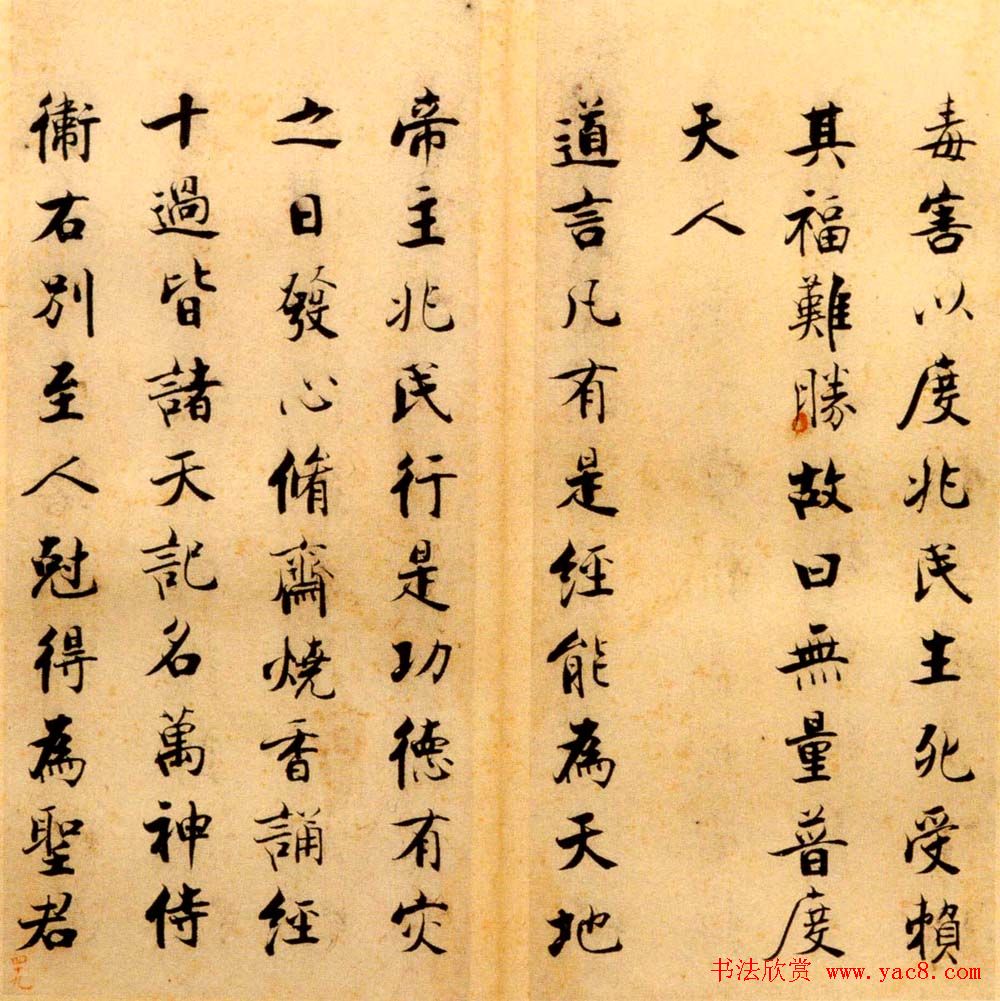 毒害以度兆民生死受賴
其福難勝故曰無量普度
天人
道言凡有是經能為天地
帝主兆民行是功德有灾
之日發心脩齋燒香誦經
十過皆諸天記名萬神侍
衞右別至人尅得為聖君
四十九
书法欣赏 www.yac8.com